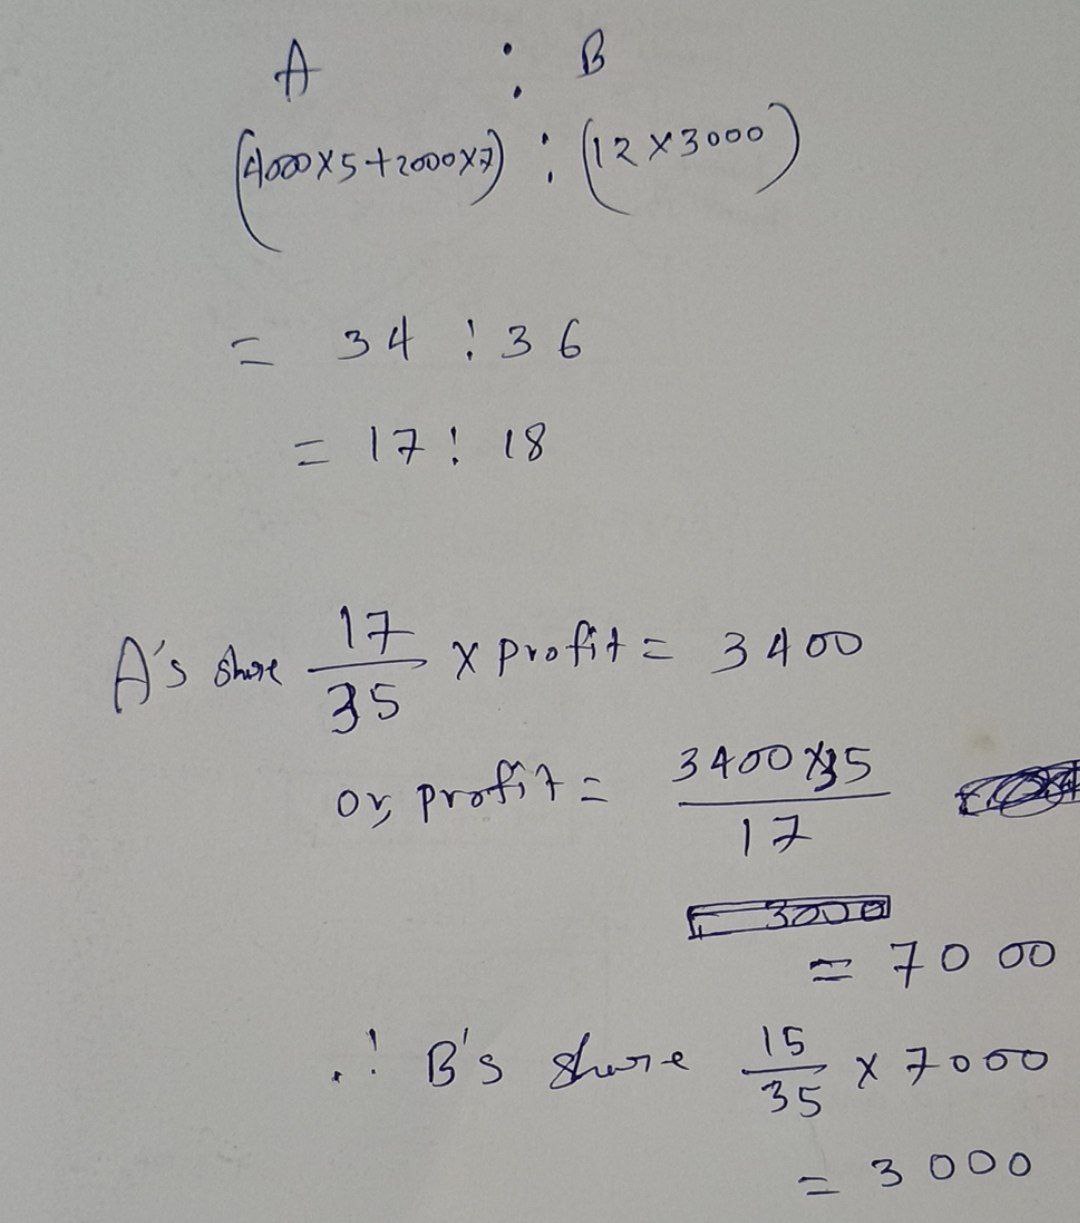 A : B
(4000×5+2000×7) : (12×3000)
= 34 : 36
= 17 : 18
A's share 17/35 × profit = 3400
or, profit = 3400×35/17
= 3000
= 7000
∴ B's share 15/35 × 7000
= 3000